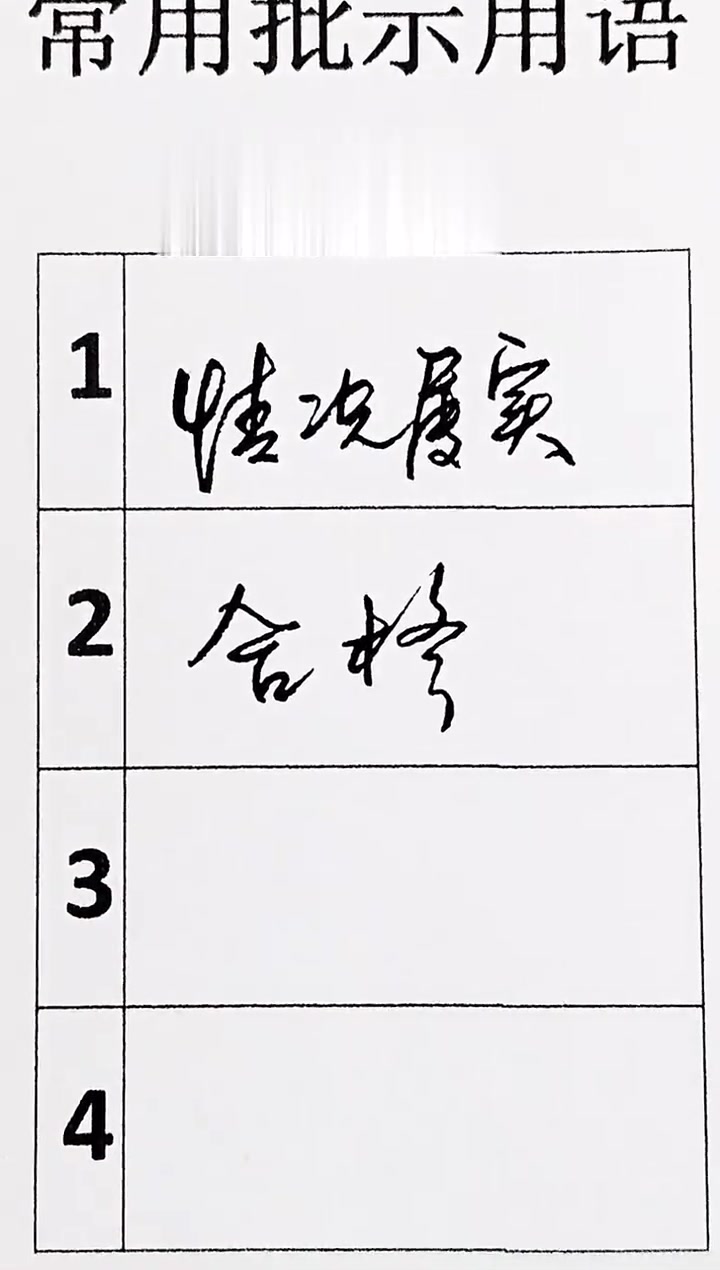 常用批示用语
1 情况属实
2 合格
3
4